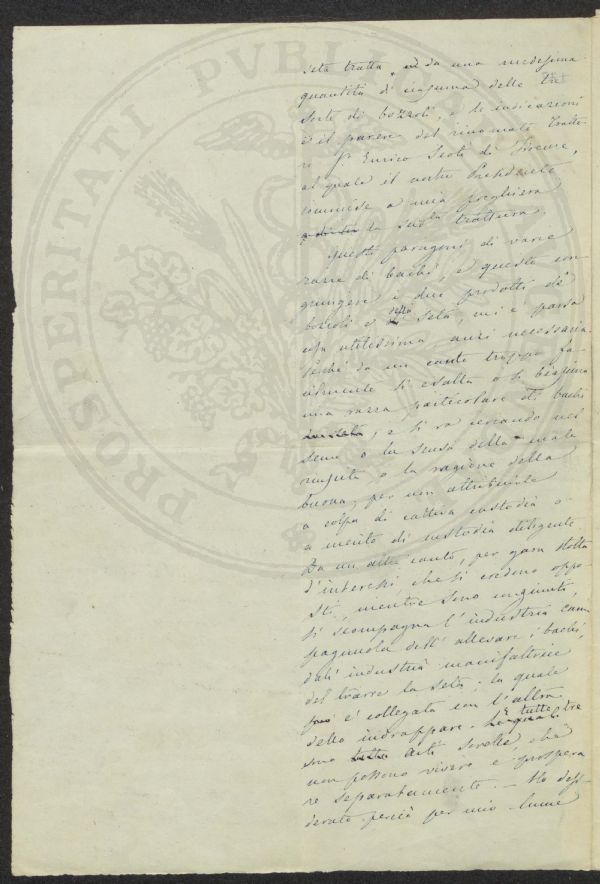 seta tratta, da una medesima
quantità d'ognuna delle tre
sorte di bozzoli, e le indicazioni
e il parere del rinomato Tratto
re Sr Enrico Scoti di Firenze,
al quale il nostro Presidente
commise a mia preghiera
la sua trattura.
Questi paragoni di varie
razze di bachi, e questo con-
giungere i due prodotti di
bozzoli e della seta, mi è parsa
cosa utilissima anzi necessaria.
Perché da un canto troppo fa-
cilmente si esalta o si biasima
una razza particolare di bachi
e si va cercando nel
seme o la scusa della mala
riuscita o la ragione della
buona, per non attribuirle
a colpa di cattiva custodia o
a merito di custodia diligente.
Da un altro canto, per gara stolta
d'interessi, che si credono oppo-
sti, mentre sono congiunti,
si scompagna l'industria cam
pagnuola dell'allevare i bachi,
dall'industria manifattrice
del trarre la seta; la quale
è collegata con l'altra
dello indrappare. tutte tre
sono Arti sorelle, che
non possono vivere e prospera
re separatamente. — Ho desi-
derato perciò per mio lume
PROSPERITATI PUBLI